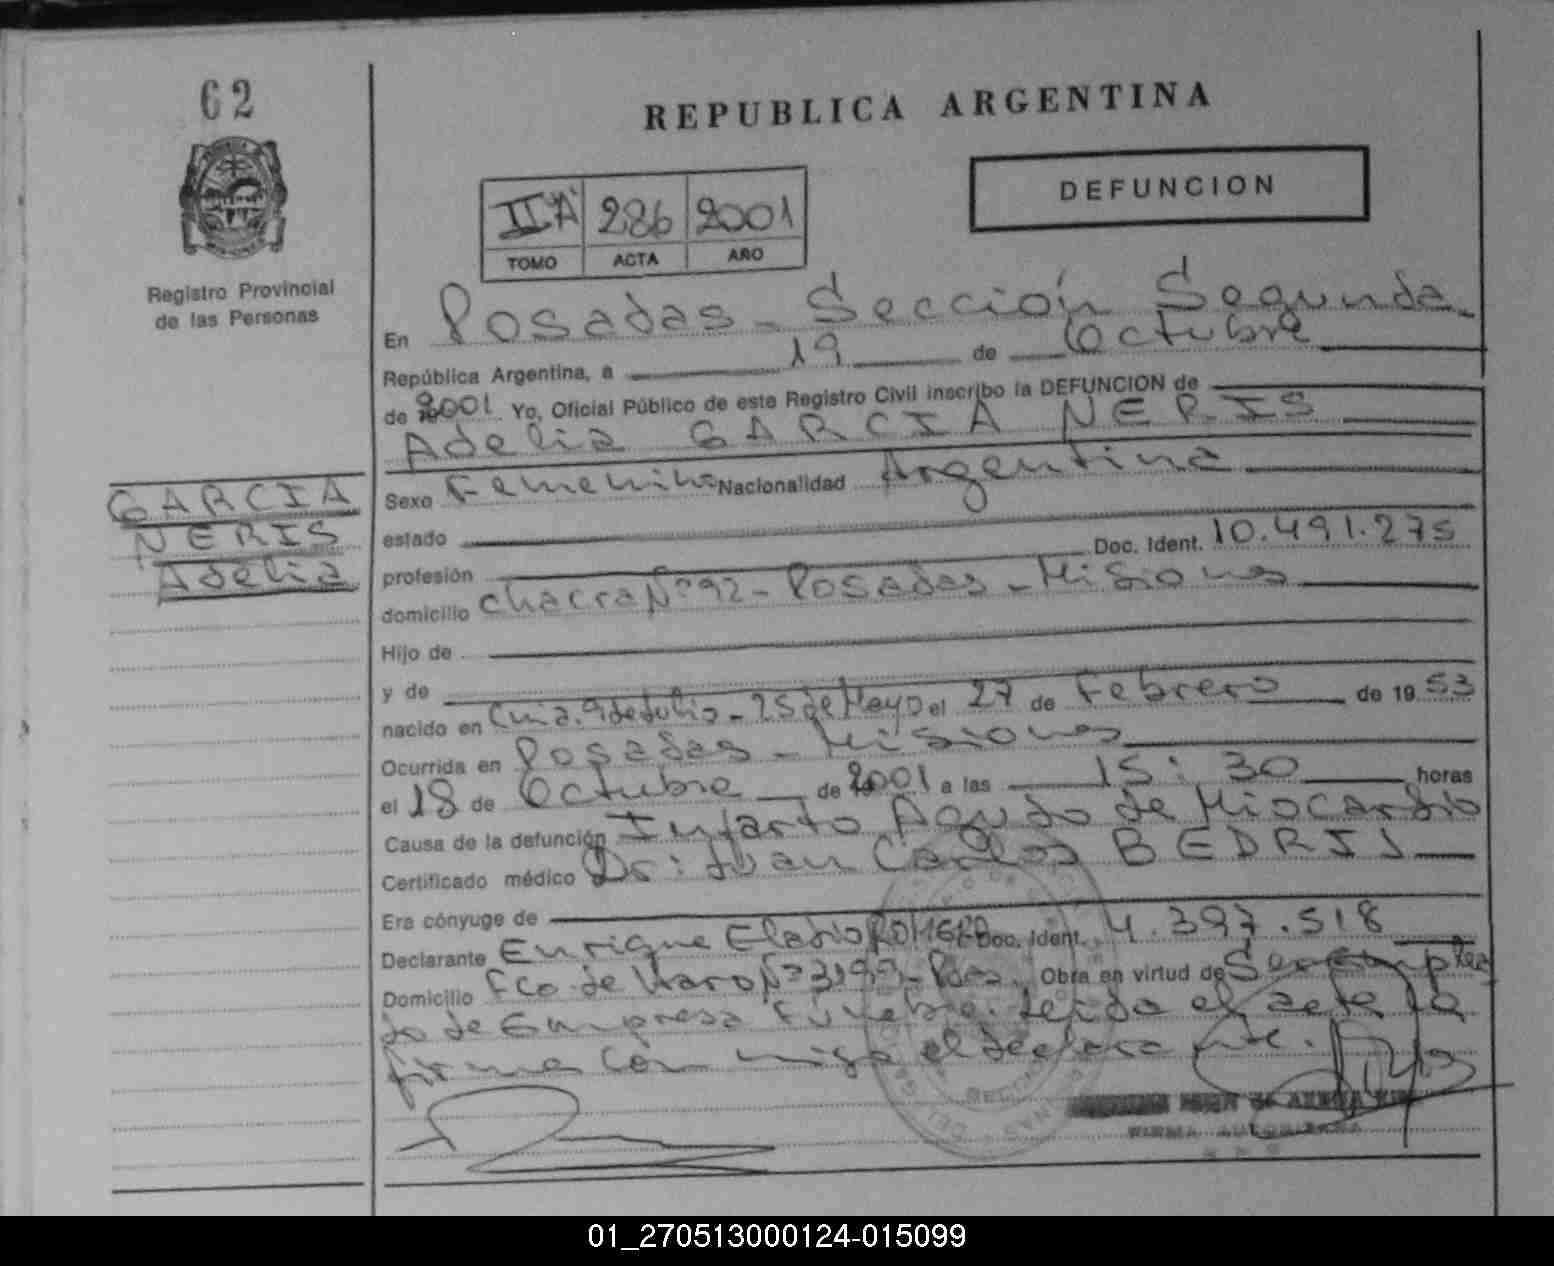 62
REPUBLICA ARGENTINA
DEFUNCION
IIA 286 2001
TOMO ACTA AÑO
Registro Provincial
de las Personas
En Posadas - Sección Segunda
República Argentina, a 19 de Octubre
de 2001 Yo, Oficial Público de este Registro Civil inscribo la DEFUNCION de
Adelia GARCIA NERIS
GARCIA
NERIS
Adelia
Sexo Femenino Nacionalidad Argentina
estado
profesión Doc. Ident. 10.491.275
domicilio chacra Nº 92 - Posadas - Misiones
Hijo de
y de
nacido en Cnia. 9 de Julio - 25 de Mayo el 27 de Febrero de 1953
Ocurrida en Posadas - Misiones
el 18 de Octubre de 2001 a las 15:30 horas
Causa de la defunción Infarto Agudo de Miocardio
Certificado médico Dr: Juan Carlos BEDRIJ
Era cónyuge de
Declarante Enrique Eladio ROMERO Doc. Ident. 4.397.518
Domicilio Fco. de Haro Nº Pdas. Obra en virtud de Ser Emplea
do de Empresa Fúnebre. Leída el acta la
firma conmigo el declarante.
01_270513000124-015099